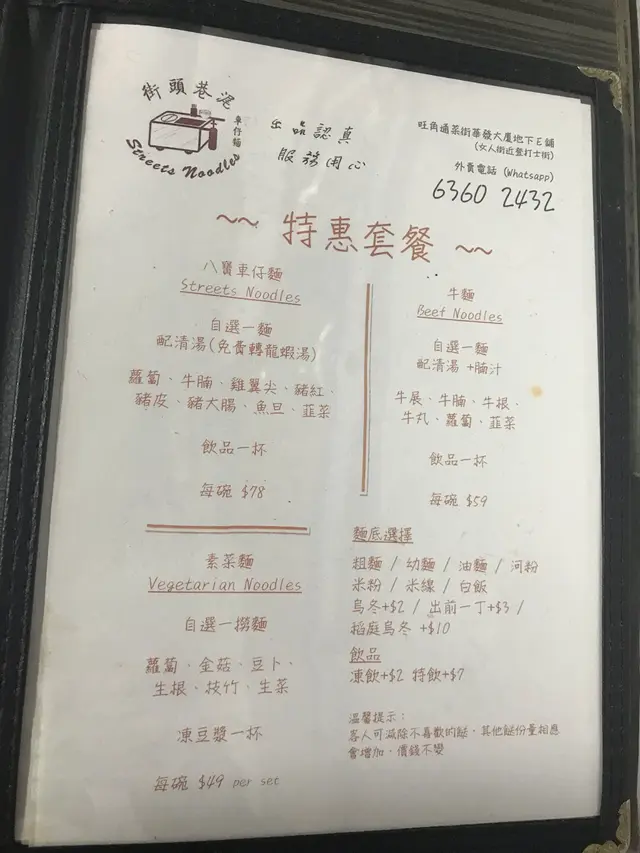 街頭巷泥
車仔麵
Streets Noodles
出品認真
服務用心
旺角通菜街華發大廈地下E舖
(女人街近登打士街)
外賣電話 (Whatsapp)
6360 2432
~~ 特惠套餐 ~~
八寶車仔麵
Streets Noodles
自選一麵
配清湯(免費轉龍蝦湯)
蘿蔔、牛腩、雞翼尖、豬紅、
豬皮、豬大腸、魚旦、韮菜
飲品一杯
每碗 $78
牛麵
Beef Noodles
自選一麵
配清湯 +腩汁
牛展、牛腩、牛根、
牛丸、蘿蔔、韮菜
飲品一杯
每碗 $59
素菜麵
Vegetarian Noodles
自選一撈麵
蘿蔔、金菇、豆卜、
生根、枝竹、生菜
凍豆漿一杯
每碗 $49 per set
麵底選擇
粗麵 / 幼麵 / 油麵 / 河粉
米粉 / 米線 / 白飯
烏冬+$2 / 出前一丁+$3 /
稻庭烏冬 +$10
飲品
凍飲+$2 特飲+$7
温馨提示:
客人可減除不喜歡的餸，其他餸份量相應
會增加，價錢不變